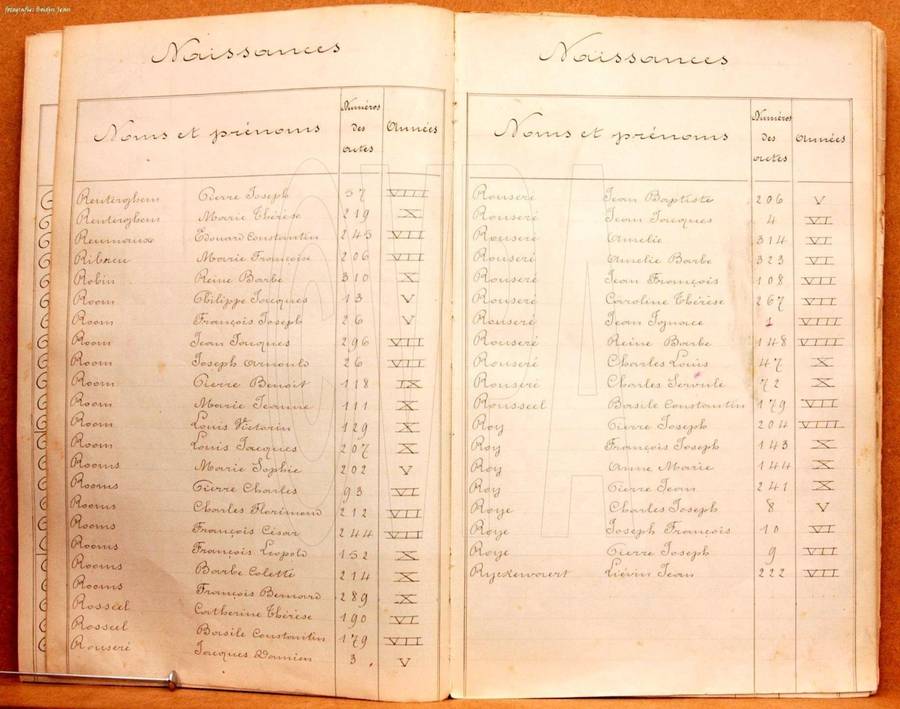 fotografie: Boidyn Jean
Naissances
Noms et prénoms Numéros des actes Années
Renterghem Pierre Joseph 57 VIII
Renterghem Marie Thérèse 219 X
Reumaux Edouard Constantin 245 VII
Marie Françoise 206 VII
Robin Reine Barbe 310 X
Room Philippe Jacques 13 V
Room François Joseph 26 V
Room Jean Jacques 296 VII
Room Joseph 26 VII
Room Pierre Benoit 118 IX
Room Marie Jeanne 111 X
Room Louis Victorin 129 X
Room Louis Jacques 207 X
Rooms Marie Sophie 202 V
Rooms Pierre Charles 93 VI
Rooms Charles Florimond 212 VII
Rooms François César 244 VII
Rooms François Léopold 152 X
Rooms Barbe Colette 214 X
Rooms François Bernard 289 X
Rosseel Catherine Thérèse 190 VI
Rosseel Basile Constantin 179 VII
Rouseré Jacques Damien 3 V
Naissances
Noms et prénoms Numéros des actes Années
Rouseré Jean Baptiste 206 V
Rouseré Jean Jacques 4 VI
Rouseré Amelie 314 VI
Rouseré Amelie Barbe 323 VI
Rouseré Jean François 108 VII
Rouseré Caroline Thérèse 267 VII
Rouseré Jean Ignace 1 VIII
Rouseré Reine Barbe 148 VIII
Rouseré Charles Louis 47 X
Rouseré Charles Servule 72 X
Rousseel Basile Constantin 179 VII
Roy Pierre Joseph 204 VIII
Roy François Joseph 143 X
Roy Anne Marie 144 X
Roy Pierre Jean 241 X
Roye Charles Joseph 8 V
Roye Joseph François 10 VI
Roye Pierre Joseph 9 VII
Ryckewaert Liévin Jean 222 VII